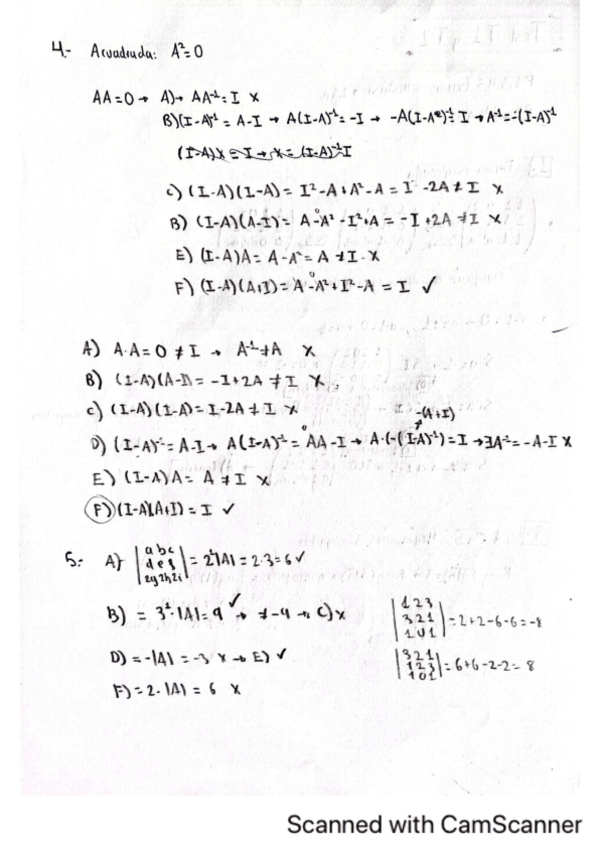 4.- A cuadrada: A²=0
AA=0 → A)→ AA⁻¹=I X
B)(I-A)⁻¹ = A-I → A(I-A)⁻¹= -I → -A(I-A)⁻¹= I → A⁻¹=-(I-A)⁻¹
(I-A)X = I → X = (I-A)⁻¹I
C) (I-A)(I-A) = I²-A+A²-A = I -2A ≠ I X
B) (I-A)(A-I) = A-A²-I²+A = -I+2A ≠ I X
E) (I-A)A = A-A² = A ≠ I X
F) (I-A)(A+I) = A-A²+I²-A = I ✓
A) A·A=0 ≠ I → A⁻¹≠A X
B) (I-A)(A-I) = -I+2A ≠ I X
C) (I-A)(I-A) = I-2A ≠ I X
-(A+I)
D) (I-A)⁻¹= A-I → A(I-A)⁻¹= AA-I → A·(-(I-A)⁻¹)=I → ∃A⁻¹= -A-I X
E) (I-A)A = A ≠ I X
F) (I-A)(A+I) = I ✓
5.- A) |a b c| = 2¹|A| = 2·3=6 ✓
|d e f|
|2g 2h 2i|
B) = 3²·|A|=9 ✓ → ≠ -9 → C) X
D) = -|A| = -3 X → E) ✓
F) = 2·|A| = 6 X
|1 2 3|
|3 2 1| = 2+2-6-6=-8
|1 0 1|
|3 2 1|
|1 2 3| = 6+6-2-2= 8
|1 0 1|
Scanned with CamScanner